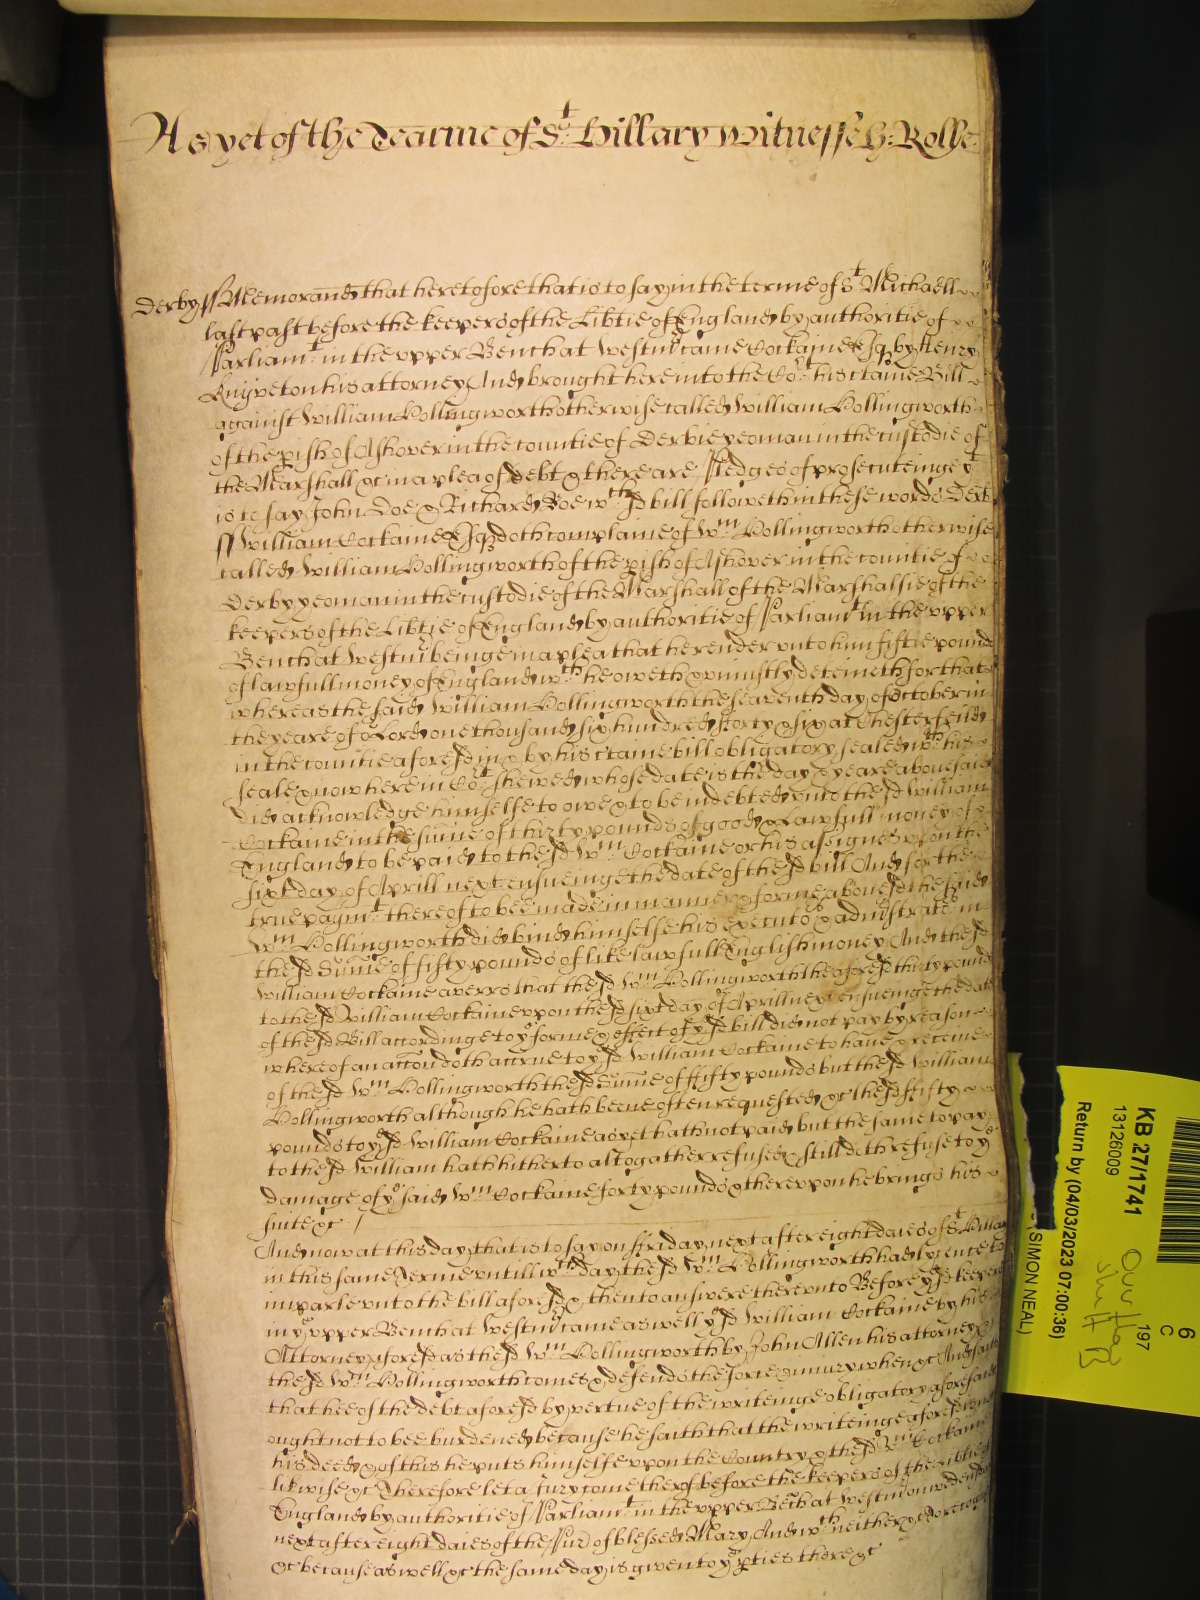 As yet of the Tearme of St: Hillary Witnesse H: Rolle
Derby ss Memorand that heretofore that is to say in the terme of St Michaell
last past before the keepers of the Libtie of England by authoritie of
Parliamt: in the upper Bench at Westm came William Cockaine Esq by Henry
Knyveton his attorney And brought here into the Cort: his ctaine Bill
against William Hollingworth otherwise called William Hollingworth
of the pish of Ashover in the countie of Derbie yeoman in the custodie of
the Marshall &c in a plea of debt & there are Pledges of prosecuteinge yt
is to say John Doe & Richard Roe wch sd bill followeth in these words Derb
ss William Cockaine Esq doth complaine of Wm Hollingworth otherwise
called William Hollingworth of the pish of Ashover in the countie of
Derby yeoman in the custodie of the Marshall of the Marshalsie of the
keepers of the Libtie of England by authoritie of Parliamt in the upper
Bench at Westm beinge in a plea that he render unto him fiftie pound
of lawfull money of England wch he oweth & uniustly deteineth for that
whereas the said William Hollingworth the seaventh day of October in
the yeare of or Lord one thousand six hundred forty & six at Chesterfeild
in the countie aforesd in & by his ctaine bill obligatory sealed wth his
seale & now here in Cort: shewed whose date is the day & yeare abovesaid
did acknowledge himselfe to owe & to be indebted unto the sd William
Cockaine in the sume of thirty pounds of good & lawfull money of
England to be paid to the sd Wm Cockaine or his assignes upon the
sixt day of Aprill next ensueinge the date of the sd bill And for the
true paymt: thereof to bee made in manner & forme abovesd the said
Wm Hollingworth did bind himselfe his executors & administrators in
the sd Sume of fifty pounds of like lawfull English money And the sd
William Cockaine averrs that the sd Wm Hollingworth the aforesd thirty pound
to the sd William Cockaine upon the sd sixt day of Aprill next ensueinge the date
of the sd Bill accordinge to ye forme & effect of ye sd bill did not pay by reason
whereof an accon doth accrue to ye sd William Cockaine to have & receive
of the sd Wm Hollingworth the sd Sume of fifty pounds but the sd William
Hollingworth although he hath beene often requested &c the sd fifty
pounds to ye sd William Cockaine as yet hath not paid but the same to pay
to the sd William hath hitherto altogather refused & still doth refuse to ye
damage of ye said Wm Cockaine forty pounds & thereupon he brings his
suite &c /
And now at this day that is to say on Friday next after eight daies of St Hillar
in this same Terme untill wch day the sd Wm Hollingworth had lycence to
imparle unto the bill aforesd & then to answere thereunto Before ye sd keepers
in ye upper Bench at Westm came as well ye sd William Cockaine by his
Attorney aforesd as the sd Wm Hollingworth by John Allen his attorney &
the sd Wm Hollingworth comes & defends the force & iniury when &c And saith
that hee of the debt aforesd by vertue of the writeinge obligatory aforesaid
ought not to bee burdened because he saith that the writeinge aforesd is not
his deed & of this he puts himselfe upon the Country & the sd Wm Cockaine
likwise &c Therefore let a Jury come therof before the keepers of the libtie of
England by authoritie of Parliamt in the upper Bech at Westm on wednesday
next after eight daies of the Pur of blessed Mary And wch neither &c to recog
&c because as well &c the same day is given to ye pties there &c
KB 27/1741
13126009
Return by (04/03/2023 07:00:36)
(SIMON NEAL)
197
6
C